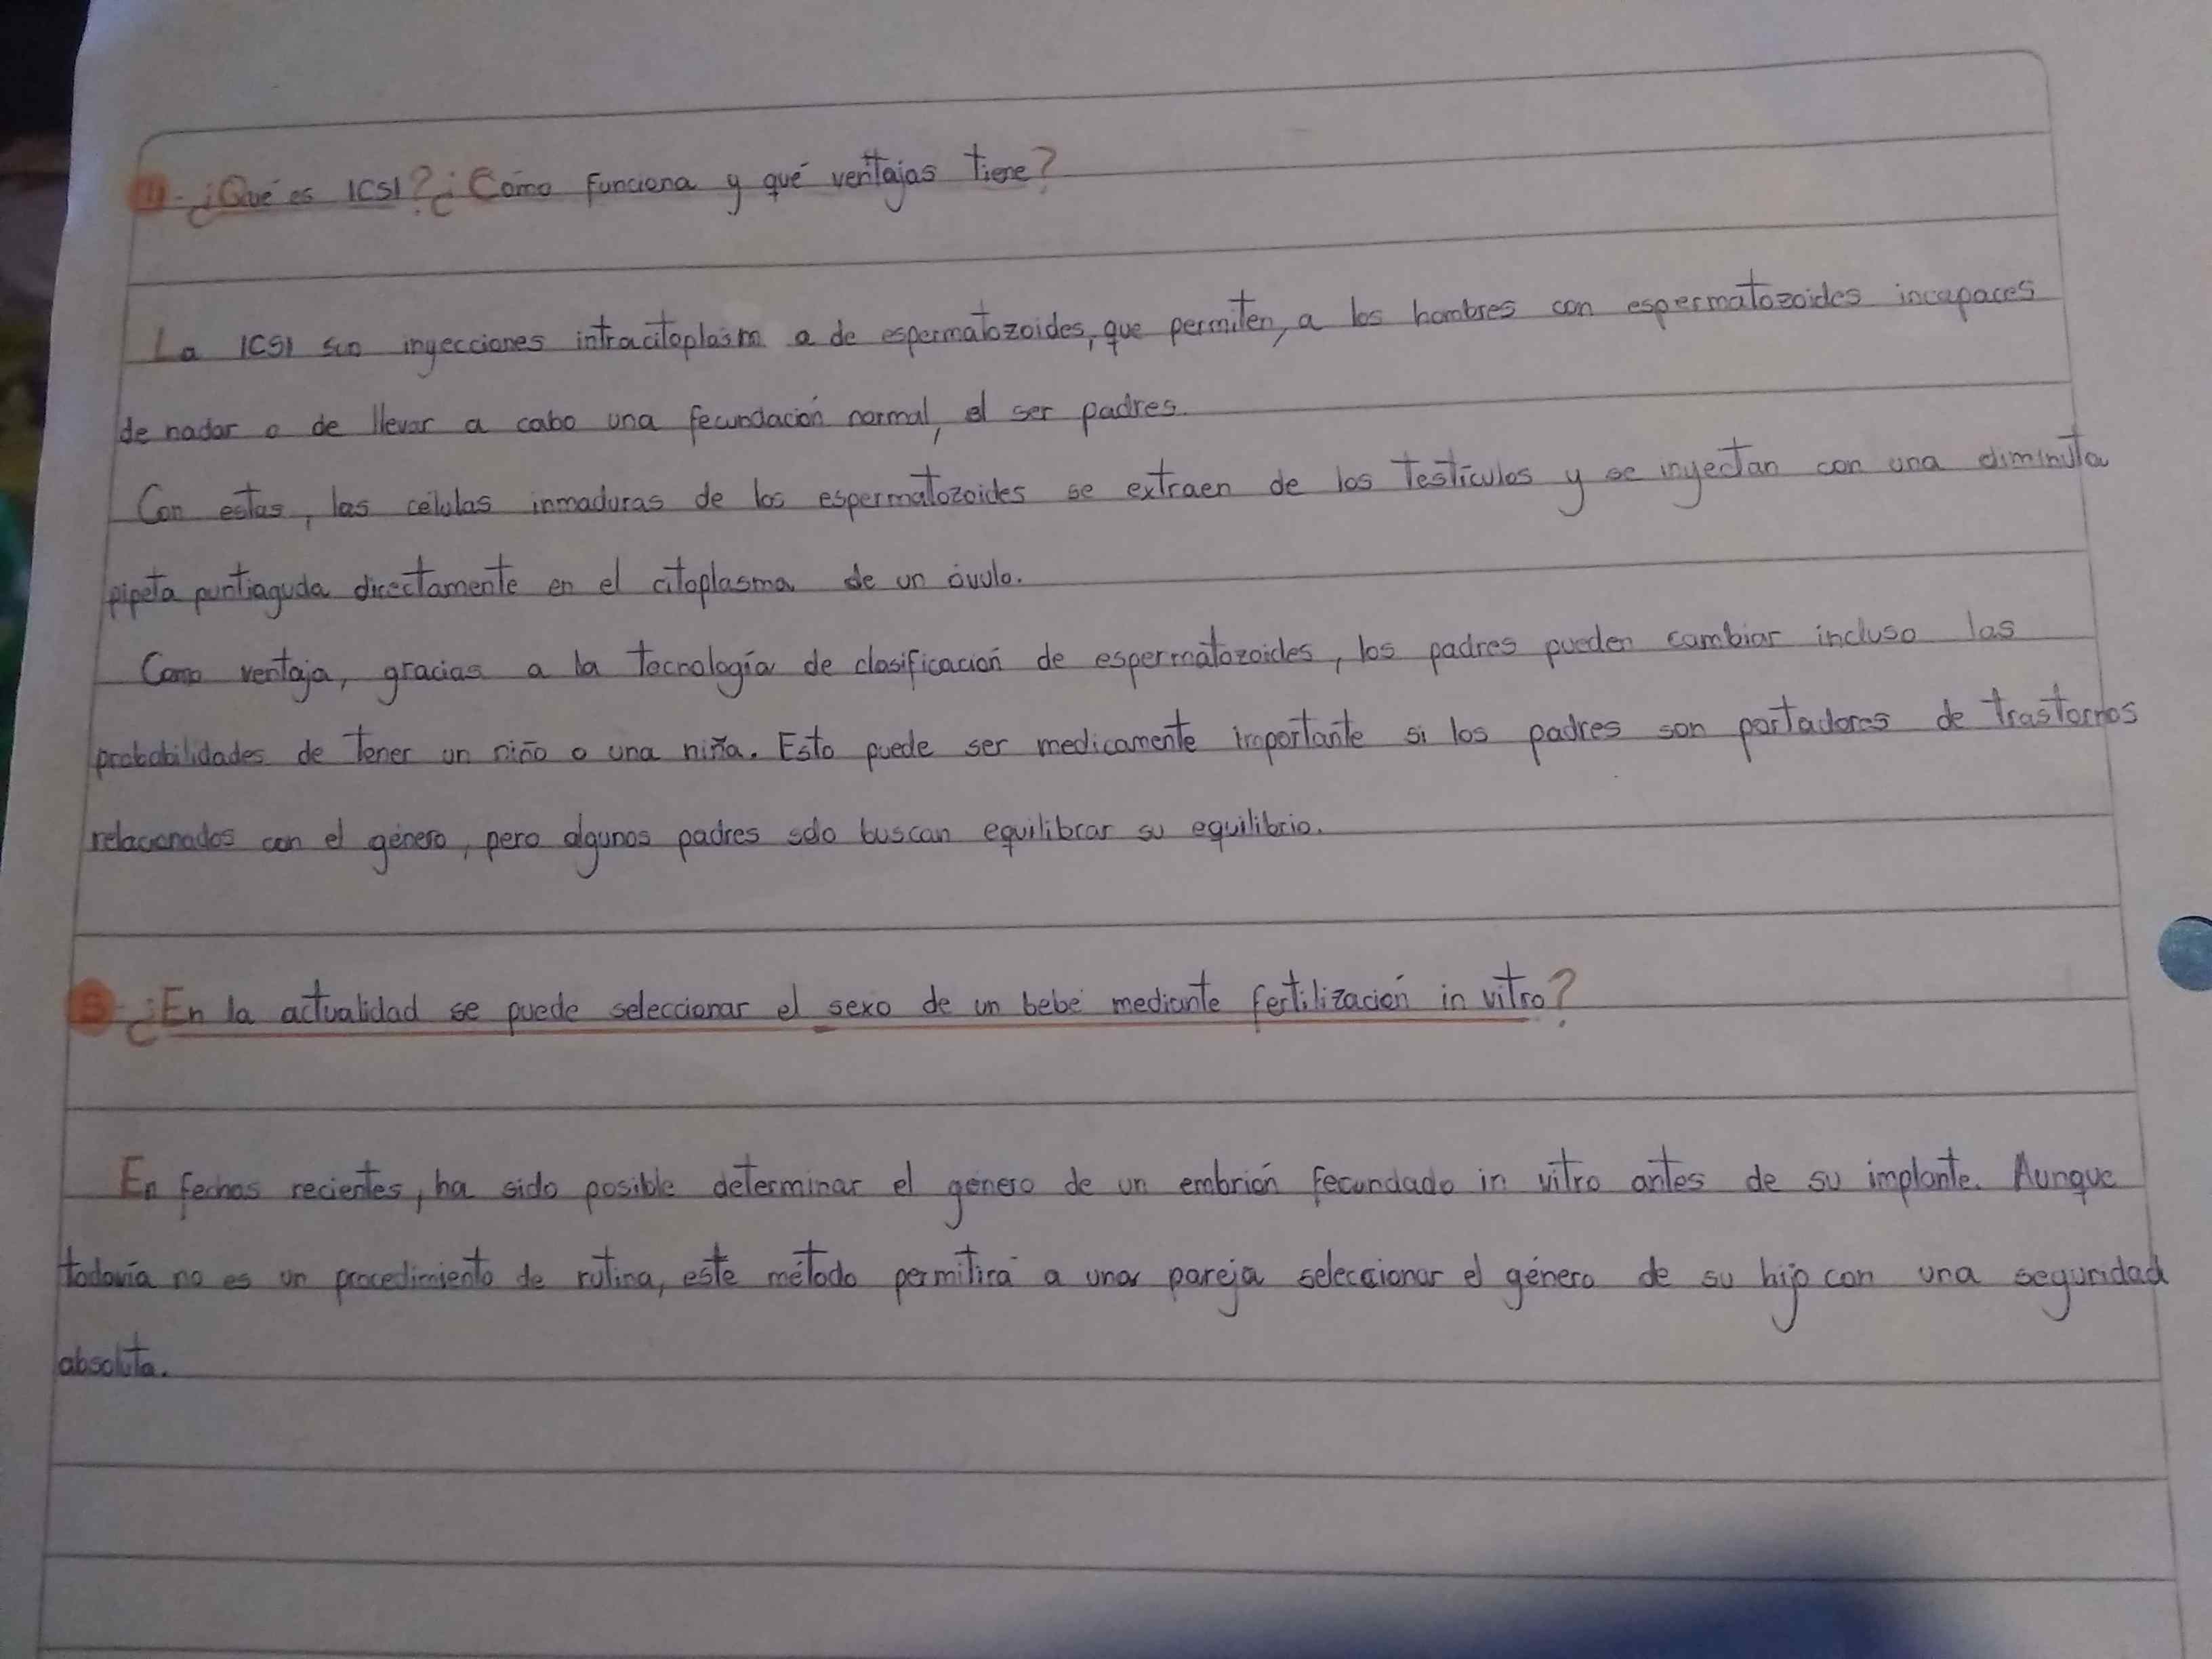 4-¿Qué es ICSI? ¿Cómo funciona y qué ventajas tiene?
La ICSI son inyecciones intracitoplasm a de espermatozoides, que permiten, a los hombres con espermatozoides incapaces
de nadar o de llevar a cabo una fecundación normal, el ser padres.
Con estas, las células inmaduras de los espermatozoides se extraen de los testículos y se inyectan con una diminuta
pipeta puntiaguda directamente en el citoplasma de un óvulo.
Como ventaja, gracias a la tecnología de clasificación de espermatozoides, los padres pueden cambiar incluso las
probabilidades de tener un niño o una niña. Esto puede ser medicamente importante si los padres son portadores de trastornos
relacionados con el género, pero algunos padres solo buscan equilibrar su equilibrio.
5-¿En la actualidad se puede seleccionar el sexo de un bebé mediante fertilización in vitro?
En fechas recientes, ha sido posible determinar el género de un embrión fecundado in vitro antes de su implante. Aunque
todavía no es un procedimiento de rutina, este método permitirá a una pareja seleccionar el género de su hijo con una seguridad
absoluta.